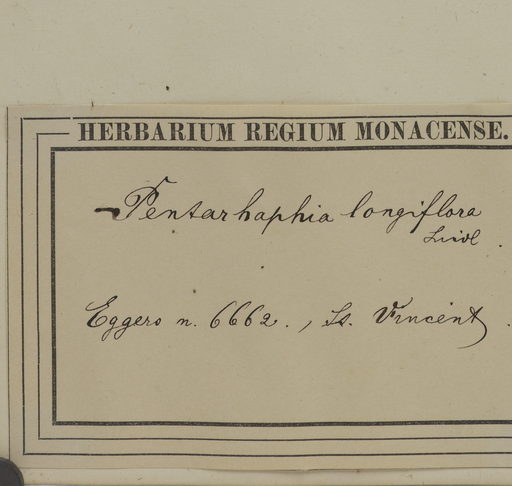 HERBARIUM REGIUM MONACENSE.
Pentarhaphia longiflora
Lindl.
Eggers n. 6662., St. Vincent.